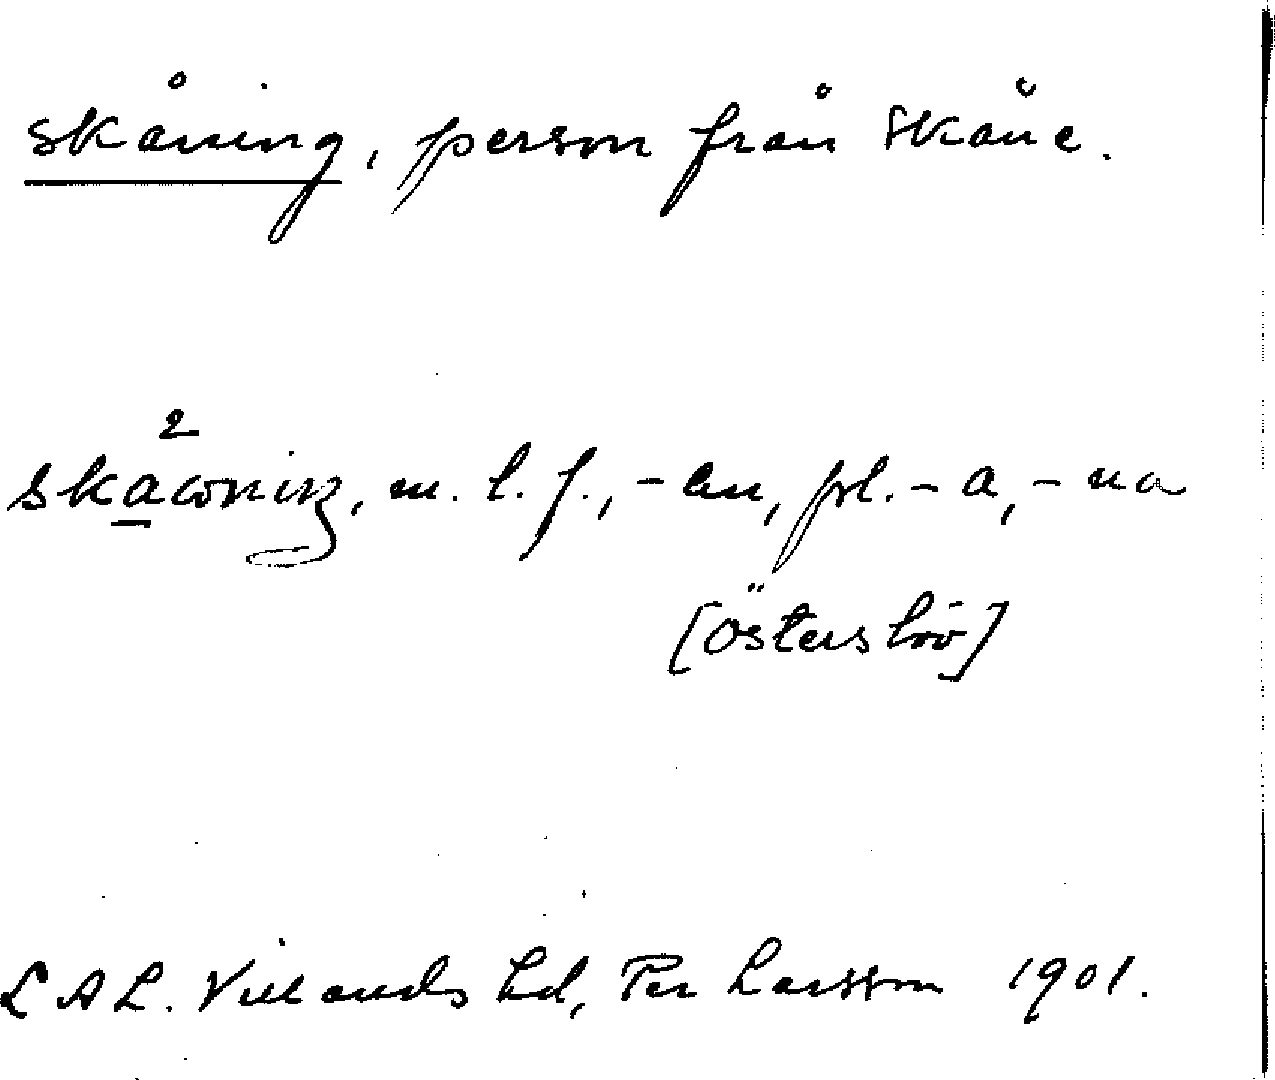 skåning, person från Skåne.
m. l. f., -en, pl. -a, -na
[Österslöv]
LAL. Villands hd, Per Larsson 1901.